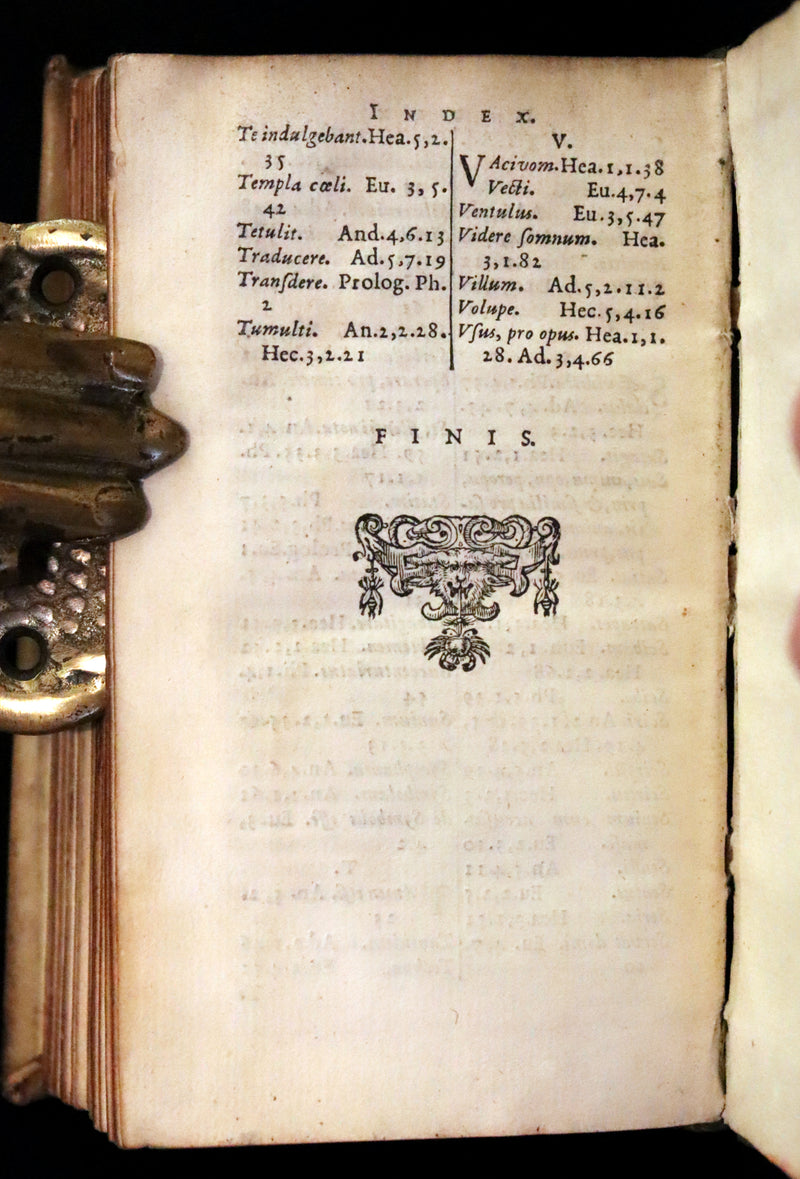 INDEX.
Te indulgebant. Hea. 5, 2.
35
Templa cœli. Eu. 3, 5.
42
Tetulit. And. 4, 6. 13
Traducere. Ad. 5, 7. 19
Tranſdere. Prolog. Ph.
2
Tumulti. An. 2, 2. 28.
Hec. 3, 2. 21
V.
VAcivom. Hea. 1, 1. 38
Vecti. Eu. 4, 7. 4
Ventulus. Eu. 3, 5. 47
Videre ſomnum. Hea.
3, 1. 82
Villum. Ad. 5, 2. 11. 2
Volupe. Hec. 5, 4. 16
Vſus, pro opus. Hea. 1, 1.
28. Ad. 3, 4. 66
FINIS.